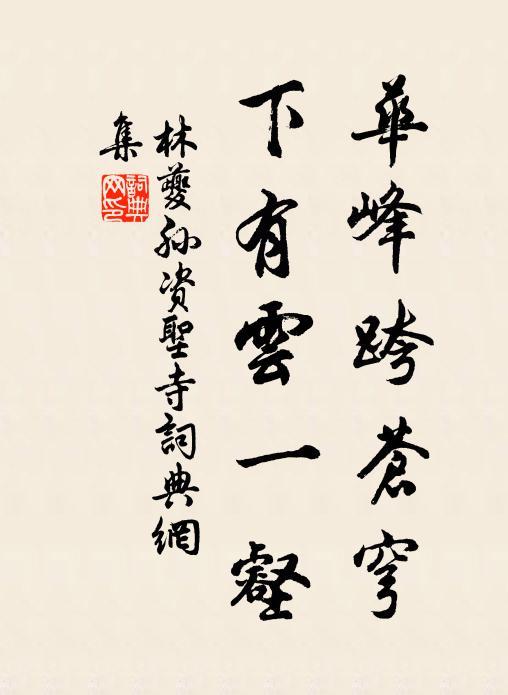 華峰跨蒼穹
下有雲一壑
林夔孫資聖寺詞典網
集
詞典網印